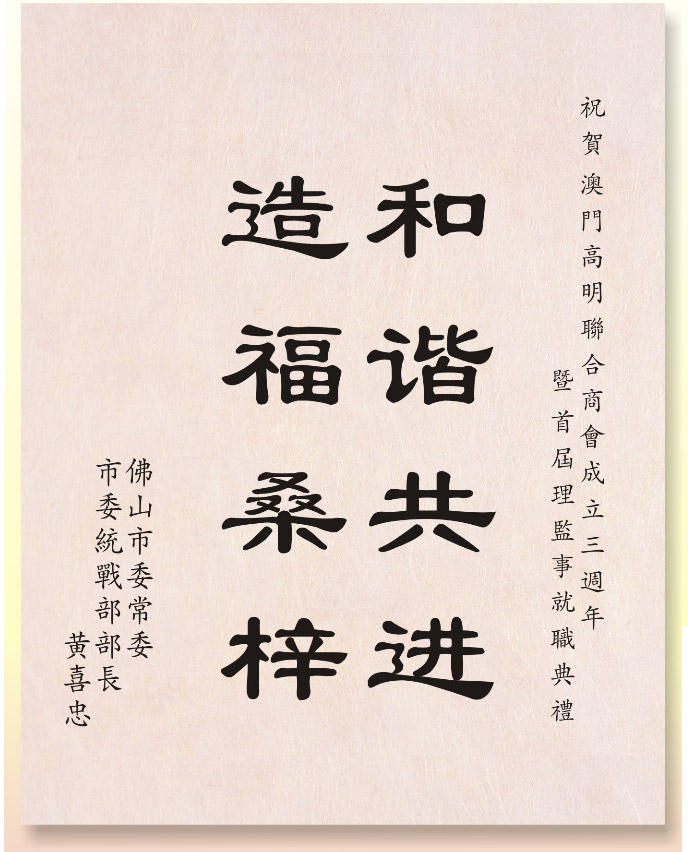 祝賀澳門高明聯合商會成立三週年
暨首屆理監事就職典禮
和谐共进
造福桑梓
佛山市委常委
市委統戰部部長
黄喜忠